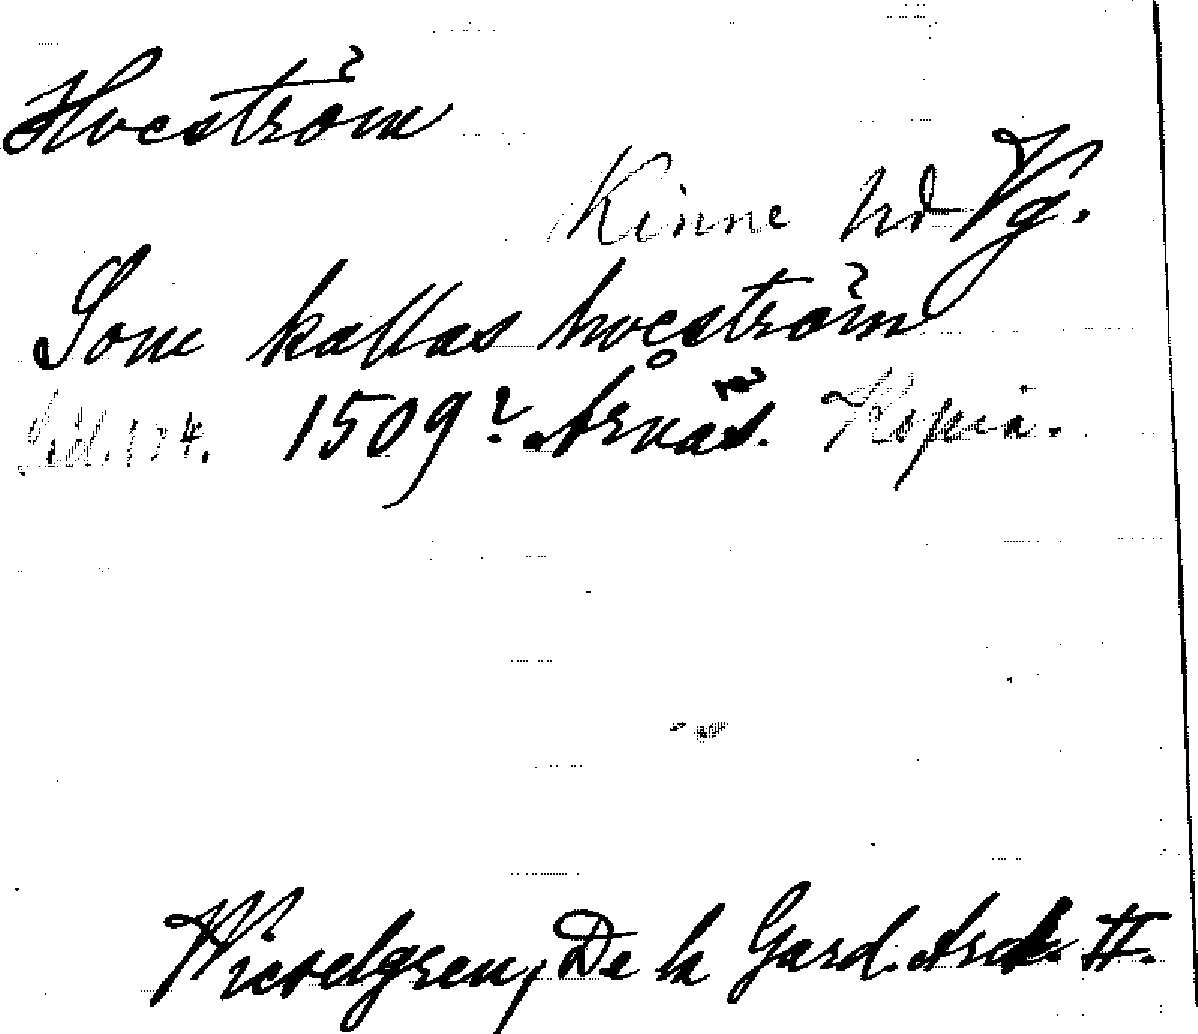 Hveström
Kinne hd Vg.
Som kallas hveström
Sid. 134. 1509? Årnäs. Kopia.
Wieselgren, De la Gard. Ark. II.